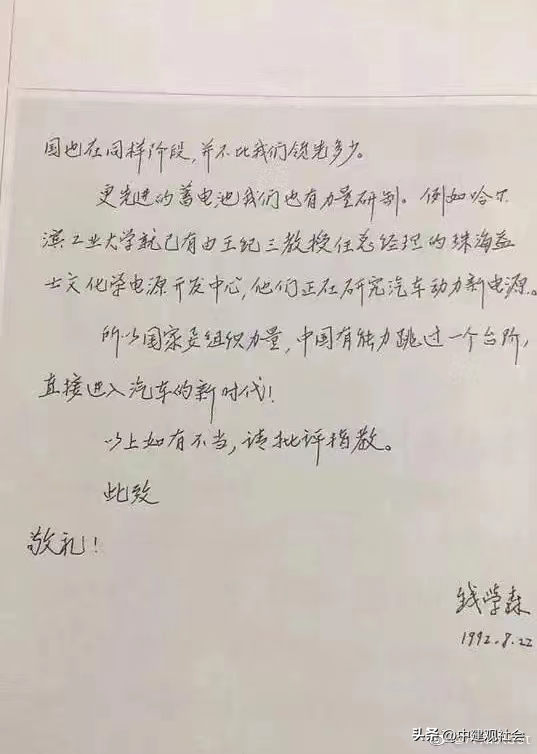 国也在同样阶段，并不比我们领先多少。
更先进的蓄电池我们也有力量研制。例如哈尔
滨工业大学就已有由王纪三教授任总经理的珠海益
士文化学电源开发中心，他们正在研究汽车动力新电源。
所以国家要组织力量，中国有能力跳过一个台阶，
直接进入汽车的新时代！
以上如有不当，请批评指教。
此致
敬礼！
钱学森
1992.8.22
头条@中建观社会